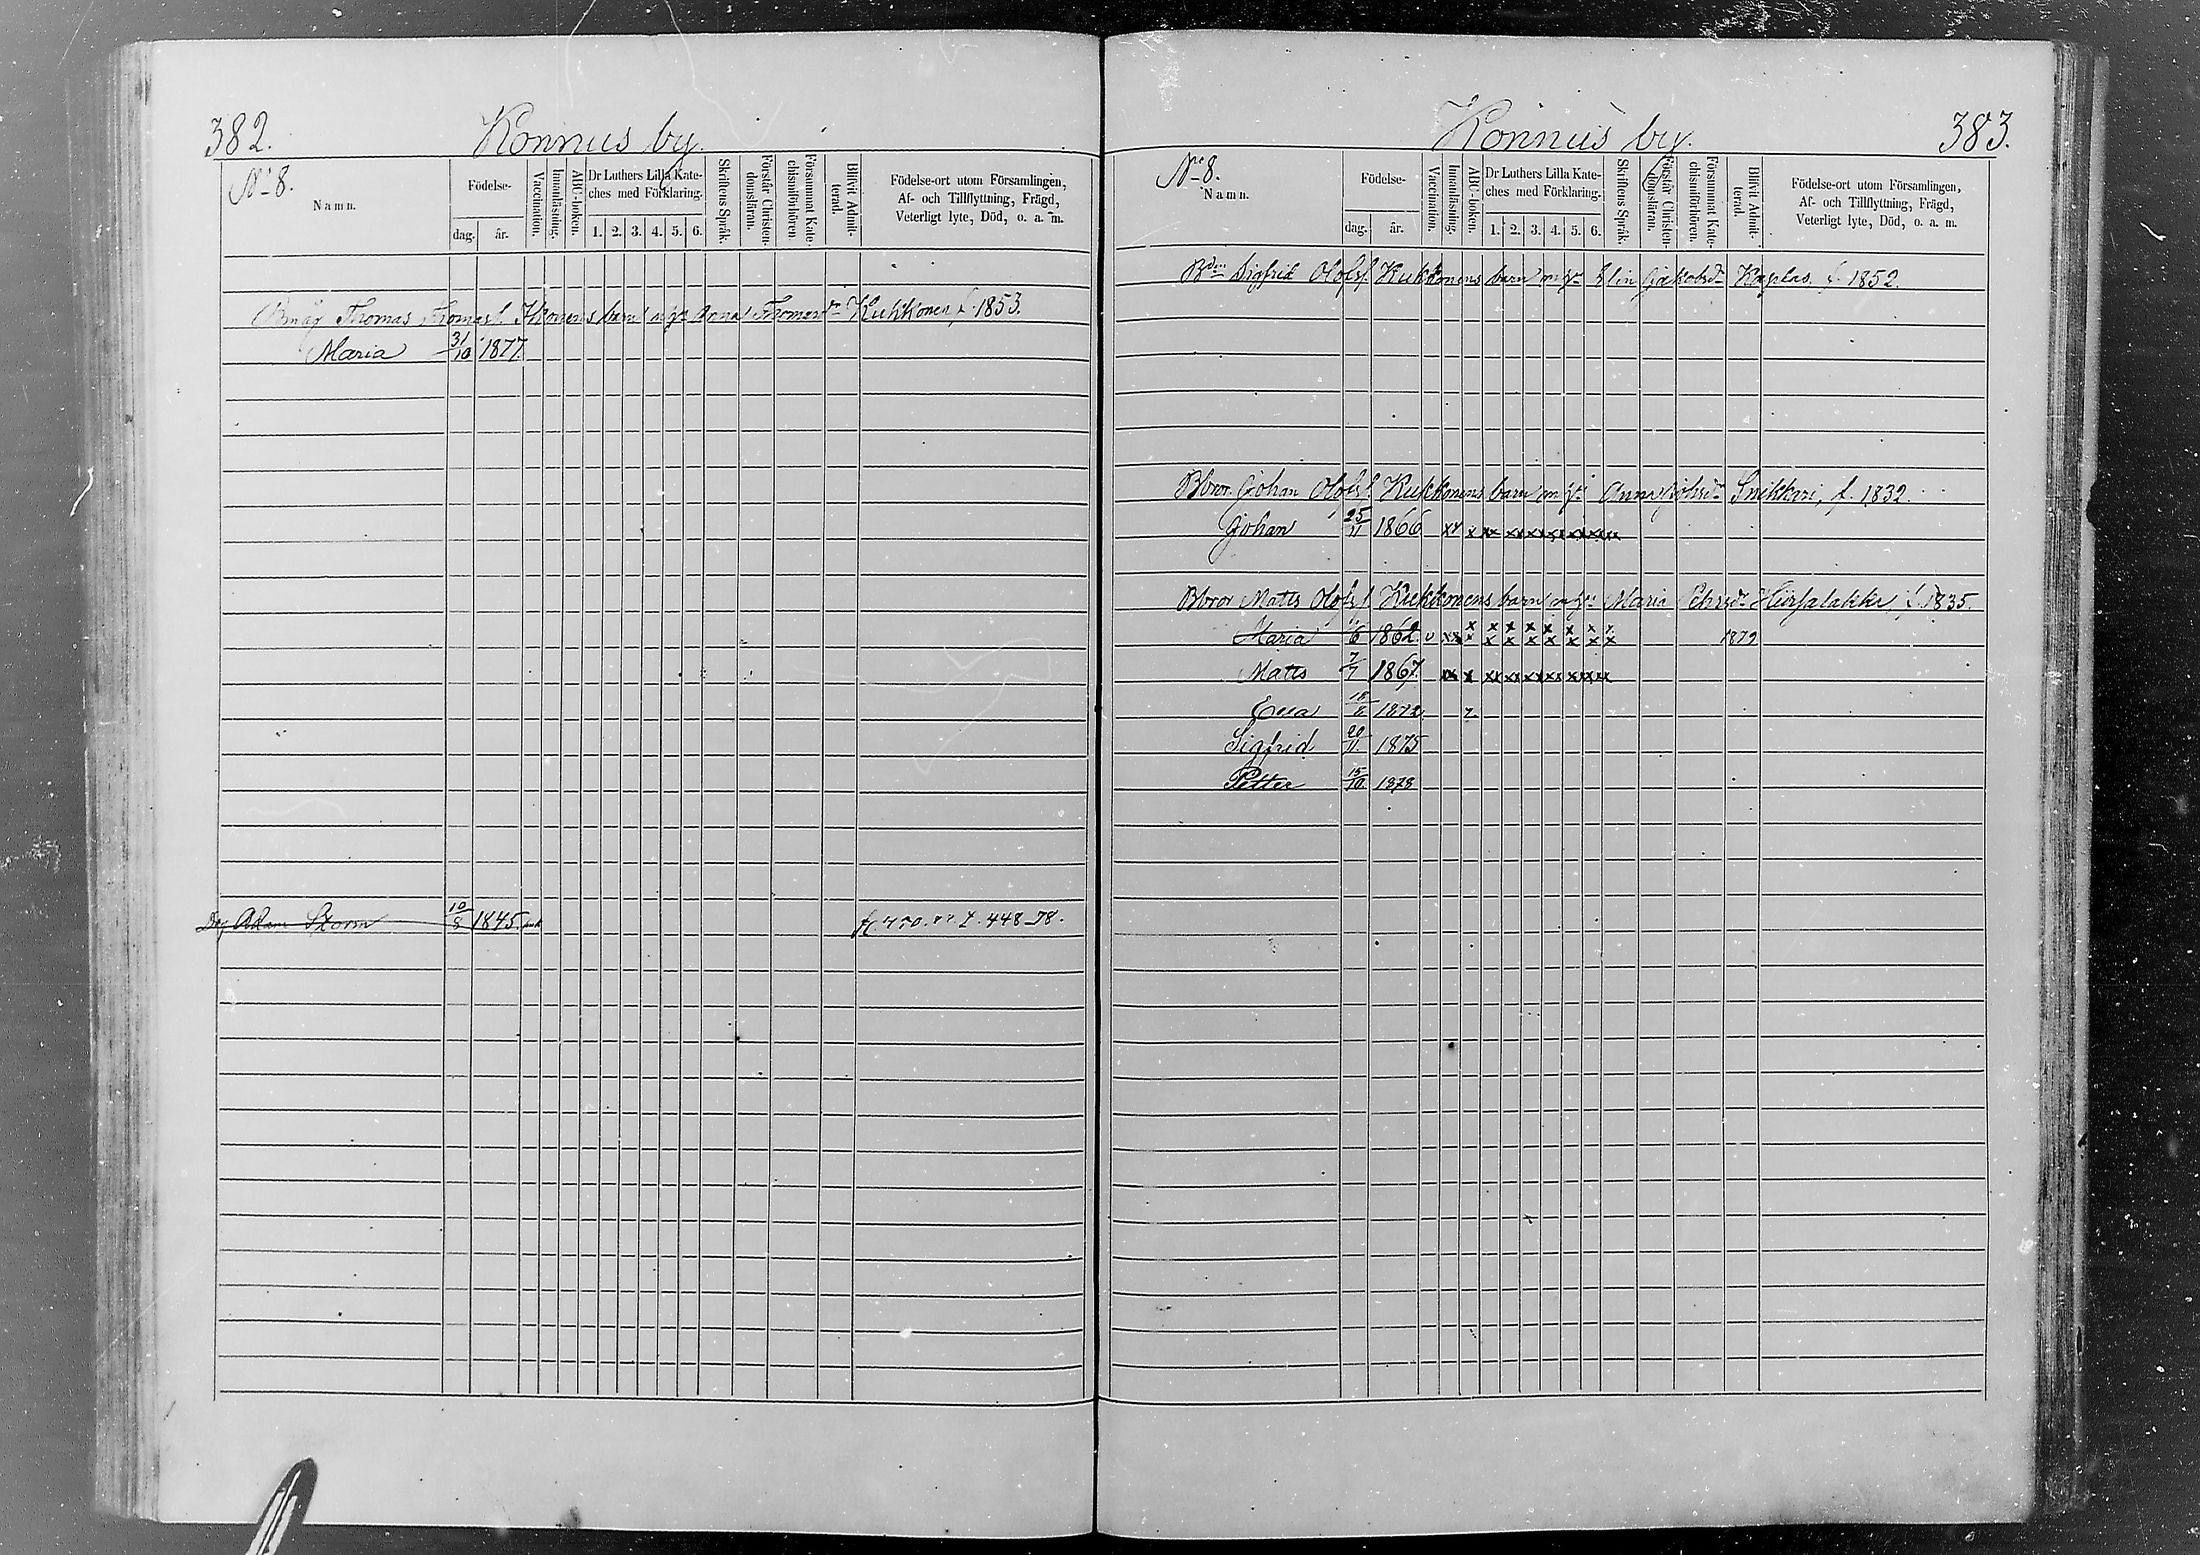 382.
Konnus by.
No 8.
Namn.
Födelse-
dag. år.
Vaccination.
Innanläsning.
ABC-boken.
Dr Luthers Lilla Kate-
ches med Förklaring.
1. 2. 3. 4. 5. 6.
Skriftens Språk.
Förstår Christen-
domsläran.
Försummat Kate-
chismiförhören.
Blifvit Admit-
terad.
Födelse-ort utom Församlingen,
Af- och Tillflyttning, Frägd,
Veterligt lyte, Död, o. a. m.
Bmåg Thomas Thomas f. Ikonens barn m. h. Anna Thomasdr Kukkonen, f. 1853.
Maria 31/10 1877.
Adam Storm 10/8 1845. 448-78.
383.
Konnus by.
No 8.
Namn.
Födelse-
dag. år.
Vaccination.
Innanläsning.
ABC-boken.
Dr Luthers Lilla Kate-
ches med Förklaring.
1. 2. 3. 4. 5. 6.
Skriftens Språk.
Förstår Christen-
domsläran.
Försummat Kate-
chismiförhören.
Blifvit Admit-
terad.
Födelse-ort utom Församlingen,
Af- och Tillflyttning, Frägd,
Veterligt lyte, Död, o. a. m.
Bdn Sigfrid Olofsf. Kukkonens barn m hu Elin Jakobsdr f. 1852.
Bbror Johan Olofs f. Kukkonens barn m hu Anna Johsdr Snikkari, f. 1832.
Johan 25/11 1866 xx x xx xx xx xx xx xx
Bbror Matts Olofs f. Kukkonens barn m hu Maria Petersdr Hürsalakka, f. 1835.
Maria 6 1862. v xx x x x x x x x 1879
Matts 7/7 1867. xx x xx xx xx xx xx xx
Eva 15/8 1872.
Sigfrid 20/11. 1875
Petter 15/10. 1878